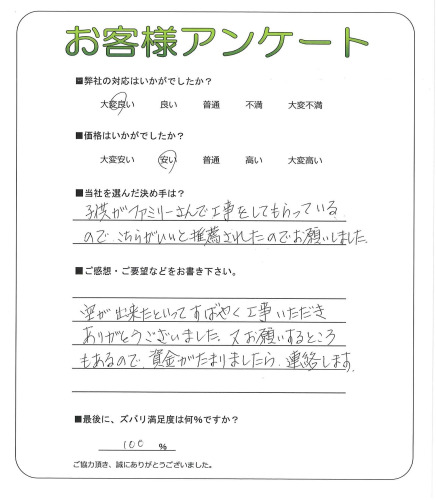 お客様アンケート
■弊社の対応はいかがでしたか?
大変良い 良い 普通 不満 大変不満
■価格はいかがでしたか?
大変安い 安い 普通 高い 大変高い
■当社を選んだ決め手は?
子供がファミリーさんで工事をしてもらっている
ので、こちらがいいと推薦されたのでお願いしました。
■ご感想・ご要望などをお書き下さい。
空が出来たといってすばやく工事いただき
ありがとうございました。又お願いするところ
もあるので、資金がたまりましたら、連絡します。
■最後に、ズバリ満足度は何%ですか?
100 %
ご協力頂き、誠にありがとうございました。